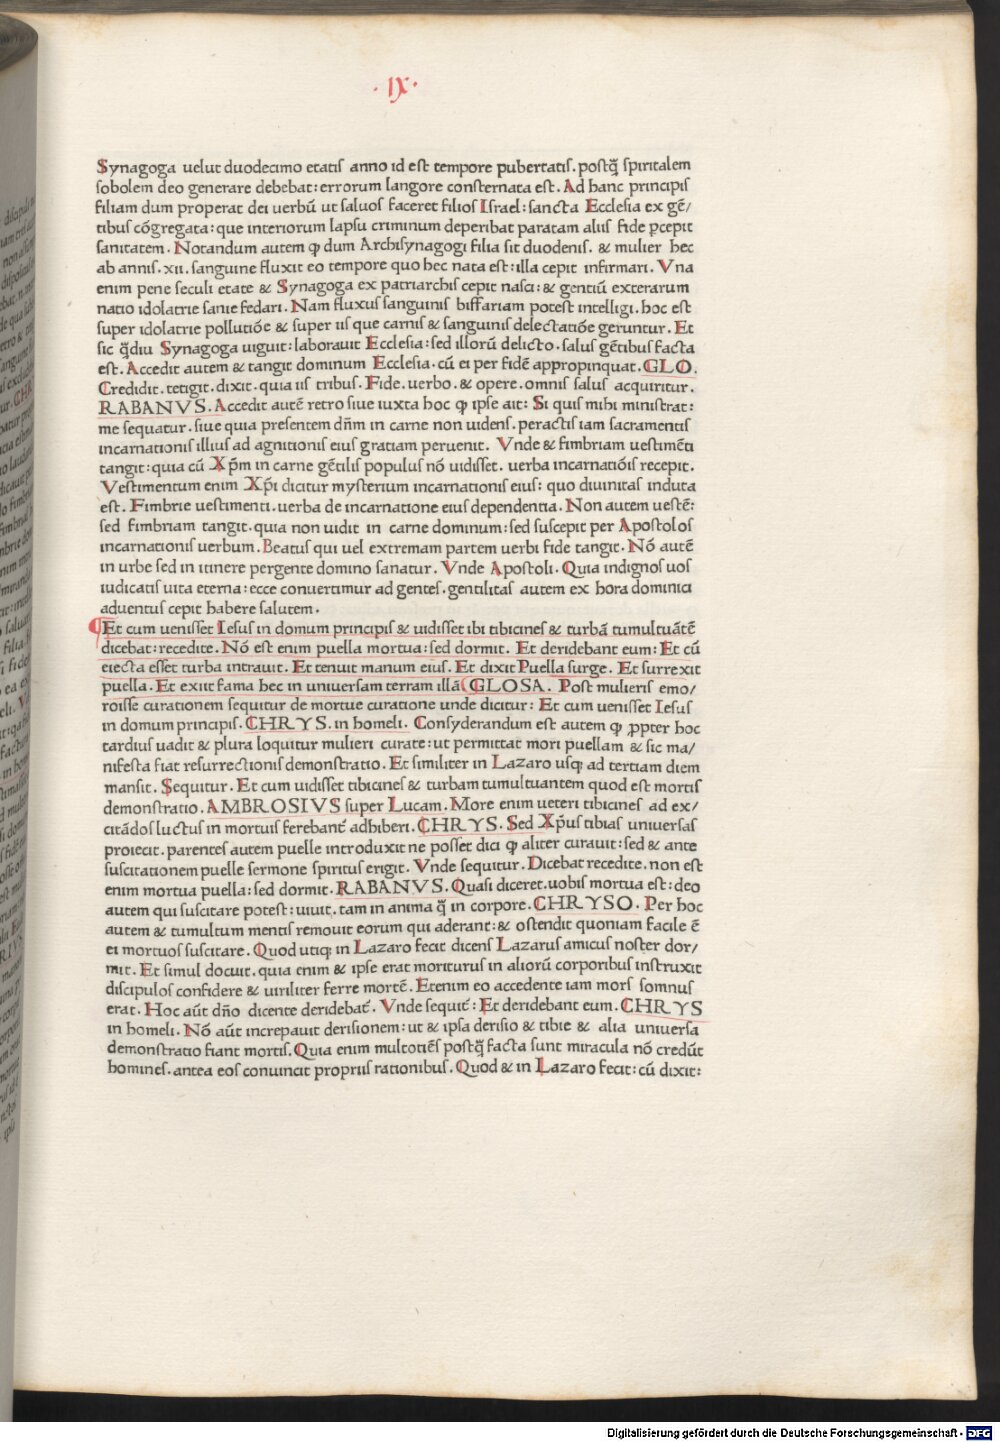 ·IX·
Synagoga uelut duodecimo etatis anno id est tempore pubertatis. postq̃ spiritalem
sobolem deo generare debebat: errorum langore consternata est. Ad hanc principis
filiam dum properat dei uerbũ ut saluos faceret filios Israel: sancta Ecclesia ex gẽ/
tibus cõgregata: que interiorum lapsu criminum deperibat paratam aliis fide ꝑcepit
sanitatem. Notandum autem ꝙ dum Archisynagogi filia sit duodenis. & mulier hec
ab annis. xii. sanguine fluxit eo tempore quo hec nata est: illa cepit infirmari. Vna
enim pene seculi etate & Synagoga ex patriarchis cepit nasci: & gentiũ exterarum
natio idolatrie sanie fedari. Nam fluxus sanguinis biffariam potest intelligi. hoc est
super idolatrie pollutiõe & super iis que carnis & sanguinis delectatiõe geruntur. Et
sic q̃diu Synagoga uiguit: laborauit Ecclesia: sed illorũ delicto. salus gẽtibus facta
est. Accedit autem & tangit dominum Ecclesia. cũ ei per fidẽ appropinquat. GLO.
Credidit. tetigit. dixit. quia iis tribus. Fide. uerbo. & opere. omnis salus acquiritur.
RABANVS. Accedit autẽ retro siue iuxta hoc ꝙ ipse ait: Si quis mihi ministrat:
me sequatur. siue quia presentem dñm in carne non uidens. peractis iam sacramentis
incarnationis illius ad agnitionis eius gratiam peruenit. Vnde & fimbriam uestimẽti
tangit: quia cũ Xp̃m in carne gẽtilis populus nõ uidisset. uerba incarnatiõis recepit.
Vestimentum enim Xp̃i dicitur mysterium incarnationis eius: quo diuinitas induta
est. Fimbrie uestimenti. uerba de incarnatione eius dependentia. Non autem uestẽ:
sed fimbriam tangit. quia non uidit in carne dominum: sed suscepit per Apostolos
incarnationis uerbum. Beatus qui uel extremam partem uerbi fide tangit. Nõ autẽ
in urbe sed in itinere pergente domino sanatur. Vnde Apostoli. Quia indignos uos
iudicatis uita eterna: ecce conuertimur ad gentes. gentilitas autem ex hora dominici
aduentus cepit habere salutem.
Et cum uenisset Iesus in domum principis & uidisset ibi tibicines & turbã tumultuãtẽ
dicebat: recedite. Nõ est enim puella mortua: sed dormit. Et deridebant eum: Et cũ
eiecta esset turba intrauit. Et tenuit manum eius. Et dixit Puella surge. Et surrexit
puella. Et exiit fama hec in uniuersam terram illã GLOSA. Post mulieris emo/
roisse curationem sequitur de mortue curatione unde dicitur: Et cum uenisset Iesus
in domum principis. CHRYS. in homeli. Consyderandum est autem ꝙ ꝓpter hoc
tardius uadit & plura loquitur mulieri curate: ut permittat mori puellam & sic ma/
nifesta fiat resurrectionis demonstratio. Et similiter in Lazaro usq; ad tertiam diem
mansit. Sequitur. Et cum uidisset tibicines & turbam tumultuantem quod est mortis
demonstratio. AMBROSIVS super Lucam. More enim ueteri tibicines ad ex/
citãdos luctus in mortuis ferebant᷑ adhiberi. CHRYS. Sed Xp̃us tibias uniuersas
proiecit. parentes autem puelle introduxit ne posset dici ꝙ aliter curauit: sed & ante
suscitationem puelle sermone spiritus erigit. Vnde sequitur. Dicebat recedite. non est
enim mortua puella: sed dormit. RABANVS. Quasi diceret. uobis mortua est: deo
autem qui suscitare potest: uiuit. tam in anima q̃ in corpore. CHRYSO. Per hoc
autem & tumultum mentis remouit eorum qui aderant: & ostendit quoniam facile ẽ
ei mortuos suscitare. Quod utiq; in Lazaro fecit dicens Lazarus amicus noster dor/
mit. Et simul docuit. quia enim & ipse erat moriturus in aliorũ corporibus instruxit
discipulos confidere & uiriliter ferre mortẽ. Etenim eo accedente iam mors somnus
erat. Hoc aũt dño dicente deridebat᷑. Vnde sequit᷑: Et deridebant eum. CHRYS
in homeli. Nõ aũt increpauit derisionem: ut & ipsa derisio & tibie & alia uniuersa
demonstratio fiant mortis. Quia enim multotiẽs postq̃ facta sunt miracula nõ credũt
homines. antea eos conuincit propriis rationibus. Quod & in Lazaro fecit: cũ dixit:
Digitalisierung gefördert durch die Deutsche Forschungsgemeinschaft - DFG